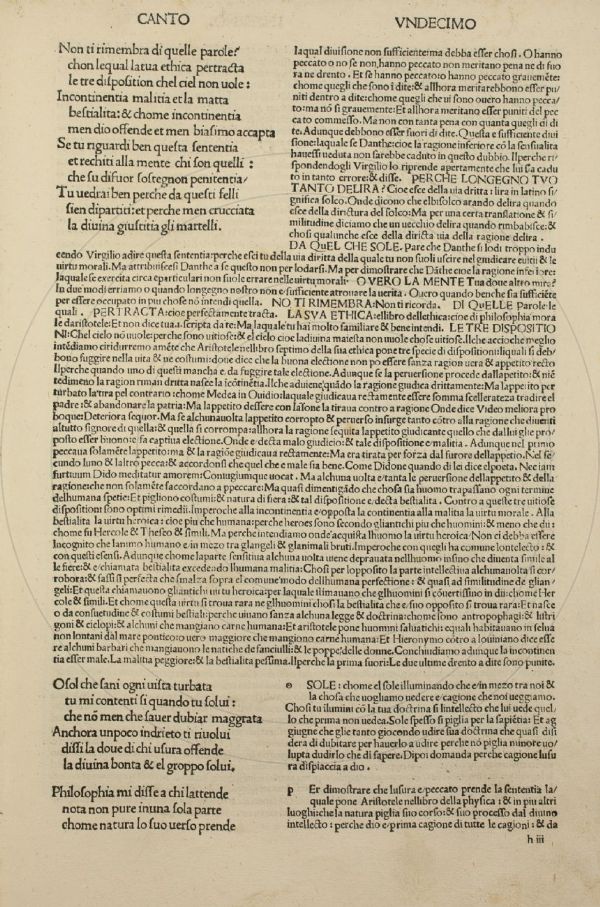 CANTO
VNDECIMO
Non ti rimembra di quelle parole?
chon lequal latua ethica pertracta
le tre disposition chel ciel non uole:
Incontinentia malitia et la matta
bestialita: & chome incontinentia
men dio offende et men biasimo accapta
Se tu riguardi ben questa sententia
et rechiti alla mente chi son quelli:
che su disuor sostegnon penitentia/
Tu uedrai ben perche da questi felli
sien dipartiti: et perche men crucciata
la diuina giustitia gli martelli.
laqual diuisione non sufficiente: ma debba esser chosi. O hanno
peccato o no se non hanno peccato non meritano pena ne di fuo
ra ne drento. Et se hanno peccato: o hanno peccato grauemēte:
chome quegli che sono i dite: & allhora meritarebbono esser pu/
niti dentro a dite: chome quegli che ui sono ouero hanno pecca/
to: ma nō si grauemente: Et allhora meritano esser puniti del pec
cato commesso. Ma non con tanta pena con quanta quegli di di
te. Adunque debbono esser fuori di dite. Questa e sufficiente diui
sione: laquale se Danthe: cioe la ragione inferiore cō la sensualita
hauessi ueduta non sarebbe caduto in questo dubbio. Ilperche ri/
spondendogli Virgilio lo riprende apertamente che lui sia cadu
to in tanto errore: & disse. PERCHE LONGEGNO TVO
TANTO DELIRA? Cioe esce della uia dritta: lira in latino si/
gnifica solco. Onde dicono che elbisolco arando delira quando
esce della dirictura del solco: Ma per una certa translatione & si/
militudine diciamo che un uecchio delira quando rimbabisce: &
chosi qualunche esce della diricta uia della ragione delira.
DA QVEL CHE SOLE. Pare che Danthe si lodi troppo indu
cendo Virgilio a dire questa sententia: perche esci tu della uia diritta della quale tu non suoli uscire nel giudicare euitii & le
uirtu morali. Ma attribuiscesi Danthe a se questo non per lodarsi. Ma per dimostrare che Dāthe cioe la ragione inferiore:
laquale se exercita circa eparticulari non suole errare nelle uirtu morali: O VERO LA MENTE Tua doue altro mire?
In due modi erriamo o quando longegno nostro non e sufficiente attrouare la uerita. Ouero quando benche sia sufficiēte
per essere occupato in piu chose nō intendi quella. NO TI RIMEMBRA: Non ti ricorda. DI QVELLE Parole: le
quali. PERTRACTA: cioe perfectamente tracta. LA SVA ETHICA: ellibro dellethica: cioe di philosophia mora
le daristotele: Et non dice tua. s. scripta da te: Ma laquale tu hai molto familiare & bene intendi. LE TRE DISPOSITIO
NI: Chel cielo nō uuole: perche sono uitiose: & el cielo cioe la diuina maiesta non uuole chose uitiose. Ilche accioche meglio
intēdiamo ciridurremo amēte che Aristotele nellibro septimo della sua ethica pone tre specie di dispositioni: liquali si deb/
bono fuggire nella uita & ne costumi: doue dice che la buona electione non po essere sanza ragion uera & appetito recto
Ilperche quando uno di questi mancha e da fuggire tale electione. Adunque se la peruersione procede dallapetito: & niē
tedimeno la ragion riman dritta nasce la īcōtinētia. Ilche aduiene quādo la ragione giudica drittamente: Ma lappetito per
turbato latira pel contrario: chome Medea in Ouidio: laquale giudicaua rectamente essere somma scellerateza tradire el
padre: & abandonare la patria: Ma lappetito dessere con Iasone la tiraua contro a ragione Onde dice Video meliora pro
boque: Deteriora sequor. Ma se alchuna uolta lappetito corropto & peruerso insurge tanto cōtro alla ragione che diuenti
altutto signore di quella: & quella si corrompa: allhora la ragione seguita lappetito giudicante quello che dallui gliè pro/
posto esser buono: & fa captiua electione. Onde e decta malo giudicio: & tale dispositione e malitia. Adunque nel primo
peccaua solamēte lappetito: ma & la ragiōe giudicaua rectamente: Ma era tirata per forza dal furore dellappetito. Nel se/
cundo luno & laltro pecca: & accordonsi che quel che e male sia bene. Come Didone quando di lei dice el poeta. Nec iam
furtiuum Dido meditatur amorem: Coniugium que uocat. Ma alchuna uolta e tanta le peruersione dellappetito & della
ragione che non solamēte saccordano a peccare: Ma quasi dimentigādo che chosa sia huomo trapassano ogni termine
delhumana spetie: Et pigliono costumi: & natura di fiera: & tal dispositione e decta bestialita. Contro a queste tre uitiose
dispositioni sono optimi rimedii. Imperoche alla incontinentia e opposta la continentia alla malitia la uirtu morale. Alla
bestialita la uirtu heroica: cioe piu che humana: perche heroes sono secondo gliantichi piu che huomini: & meno che dii:
chome fu Hercole & Theseo & simili. Ma perche intendiamo onde acquista lhuomo la uirtu heroica/ Non ci debba essere
Incognito che lanimo humano e in mezo tra glangeli & glanimali bruti. Imperoche con quegli ha comune lontelecto: &
con questi esensi. Adunque chome la parte sensitiua alchuna uolta uiene deprauata nellhuomo insino che diuenta simile al
le fiere: & e chiamata bestialita excedendo lhumana malitia: Chosi per lopposito la parte intellectiua alchuna uolta si cor/
robora: & fassi si perfecta che sinalza sopra el comune modo dellhumana perfectione: & quasi ad similitudine de glian/
geli: Et questa chiamauono gliantichi uirtu heroica: per laquale stimauano che glhuomini si cōuertissino in dii: chome Her
cole & simili. Et chome questa uirtu si troua rara ne glhuomini chosi la bestialita che e suo opposito si troua rara: Et nasce
o da consuetudine & costumi bestiali: perche uiuano sanza alchuna legge & doctrina: chome sono antropophagi: & listri
goni & ciclopi: & alchuni che mangiano carne humana: Et aristotele pone huomini saluatichi: equali habitauano in selua
non lontani dal mare pontico: o uero maggiore che mangiono carne humana: Et Hieronymo cōtro a louiniano dice esse
re alchuni barbari che mangiauono le natiche de fanciulli: & le poppe delle donne. Conchiudiamo adunque la incontinen
tia esser male. La malitia peggiore: & la bestialita pessima. Ilperche la prima suori: Le due ultime drento a dite sono punite.
Osol che sani ogni uista turbata
tu mi contenti si quando tu solui:
che nō men che sauer dubiar maggrata
Anchora unpoco indrieto ti riuolui
dissi la doue di chi usura offende
la diuina bonta & el groppo solui.
Philosophia mi disse a chi lattende
nota non pure inuna sola parte
chome natura lo suo uerso prende
o SOLE: chome el sole illuminando che e in mezo tra noi &
la chosa che uogliamo uedere e cagione che noi ueggiamo.
Chosi tu ilumini cō la tua doctrina si lintellecto che lui uede quel/
lo che prima non uedea. Sole spesso si piglia per la sapiētia: Et ag
giugne che glie tanto giocondo udire sua doctrina che quasi disi
dera di dubitare per hauerlo a udire perche nō piglia minore uo/
lupta dudirlo che di sapere. Dipoi domanda perche cagione lusu
ra dispiaccia a dio.
p Er dimostrare che lusura e peccato prende la sententia la/
quale pone Aristotele nellibro della physica: & in piu altri
luoghi: che la natura piglia suo corso: & suo processo dal diuino
intellecto: perche dio e prima cagione di tutte le cagioni: & da
h iii